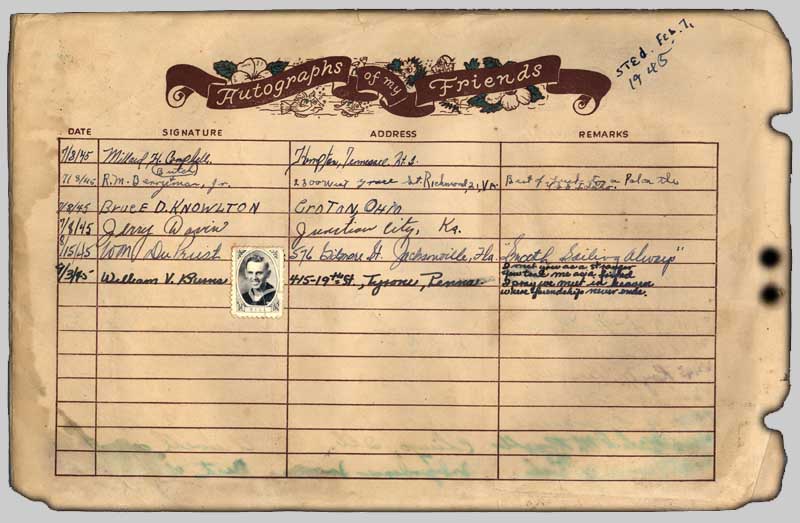 Autographs of my Friends
STEd. Feb. 7, 1945
DATE SIGNATURE ADDRESS REMARKS
7/8/45 Millard H. Campbell Hampton, Tennessee,
(Butch)
7/8/45 R.M. Berryman, Jr. 2300 West Grace St. Richmond, 21, VA. Best of luck to a Pal on the
7/8/45 BRUCE D. KNOWLTON CROTON, OHIO
7/8/45 Jerry Davin Junction City, Ks.
8/15/45 WM Du Priest 576 St. Jacksonville, Fla. "Smooth Sailing Always"
9/3/45 William V. 415-19TH St., Tyrone, Penna. I met you as a stranger
You took me as a friend
I pray we meet in heaven
where friendship never ends.